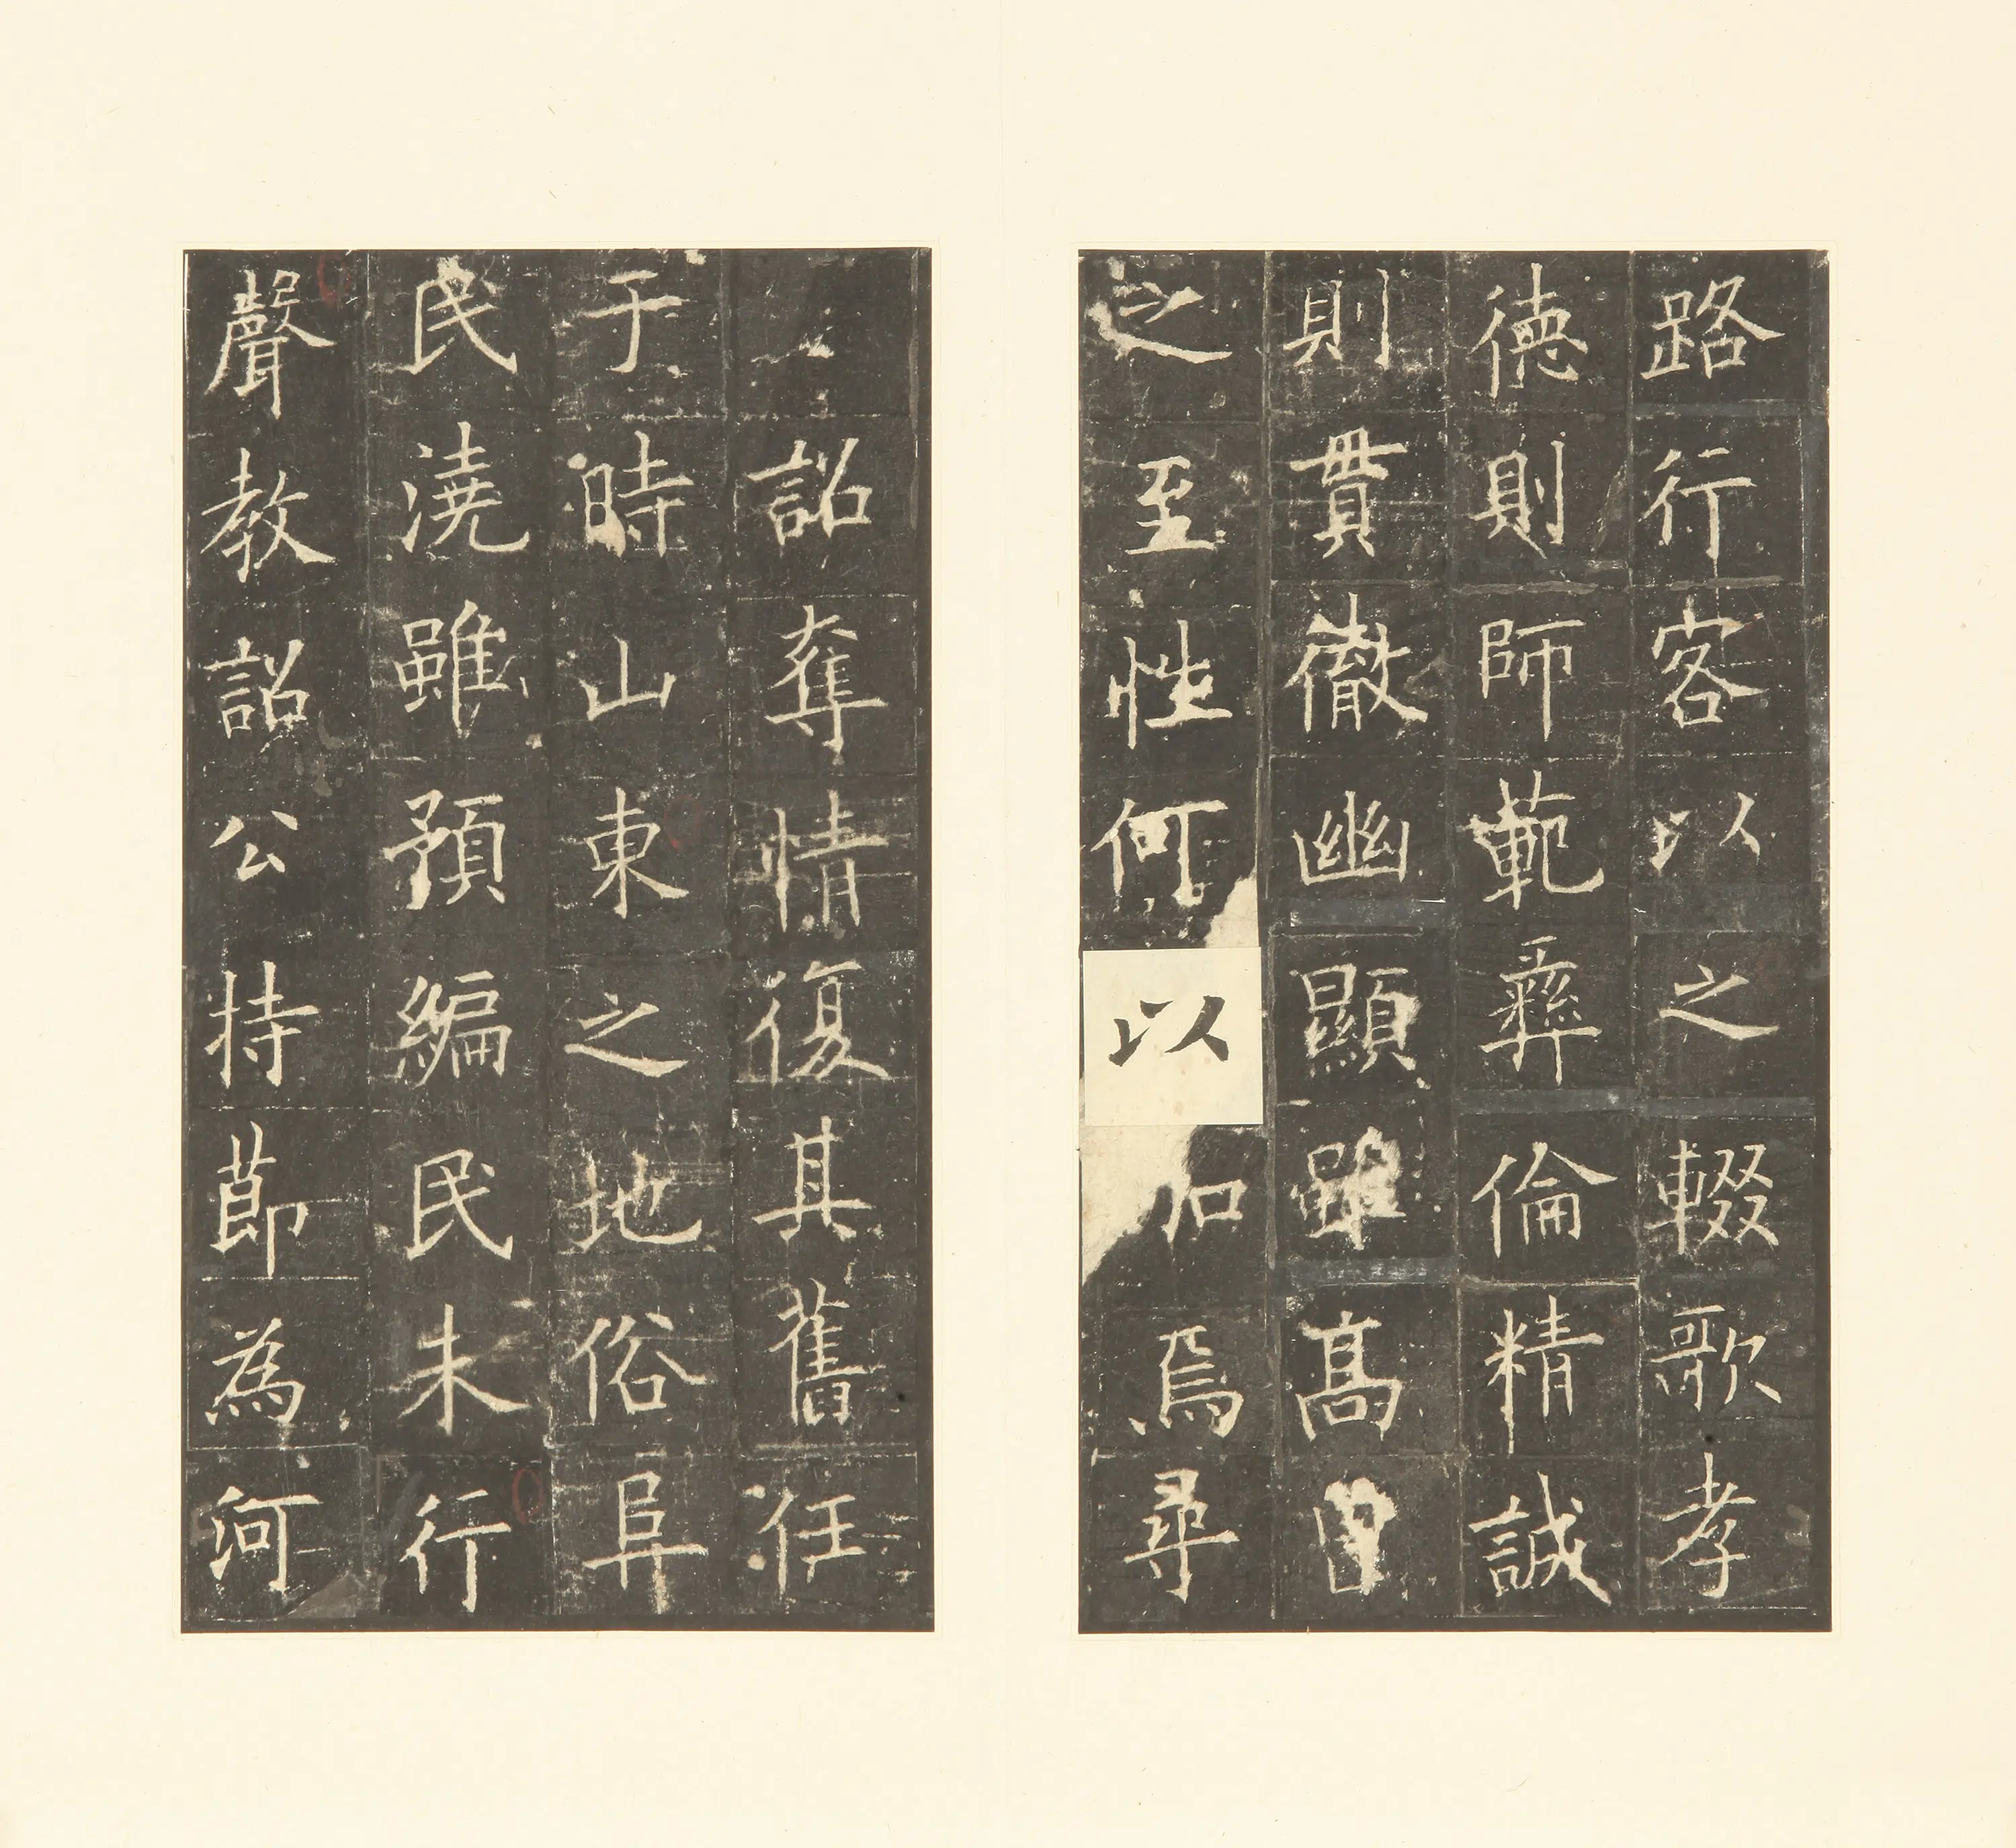 路行客以之輟歌孝
德則師範彝倫精誠
則貫徹幽顯雖高曾
之至性何以加焉尋
詔奪情復其舊任
于時山東之地俗阜
民澆雖預編民未行
聲教詔公持節為河